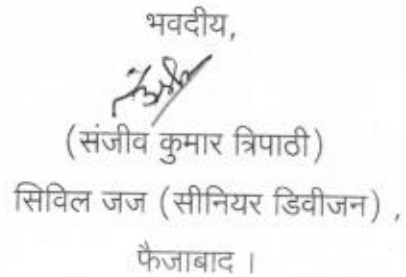 भवदीय,
(संजीव कुमार त्रिपाठी)
सिविल जज (सीनियर डिवीजन) ,
फैजाबाद ।